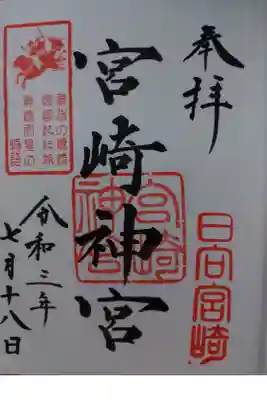 奉拝
日向宮崎
宮崎神宮
宮崎神宮
令和三年
七月十八日